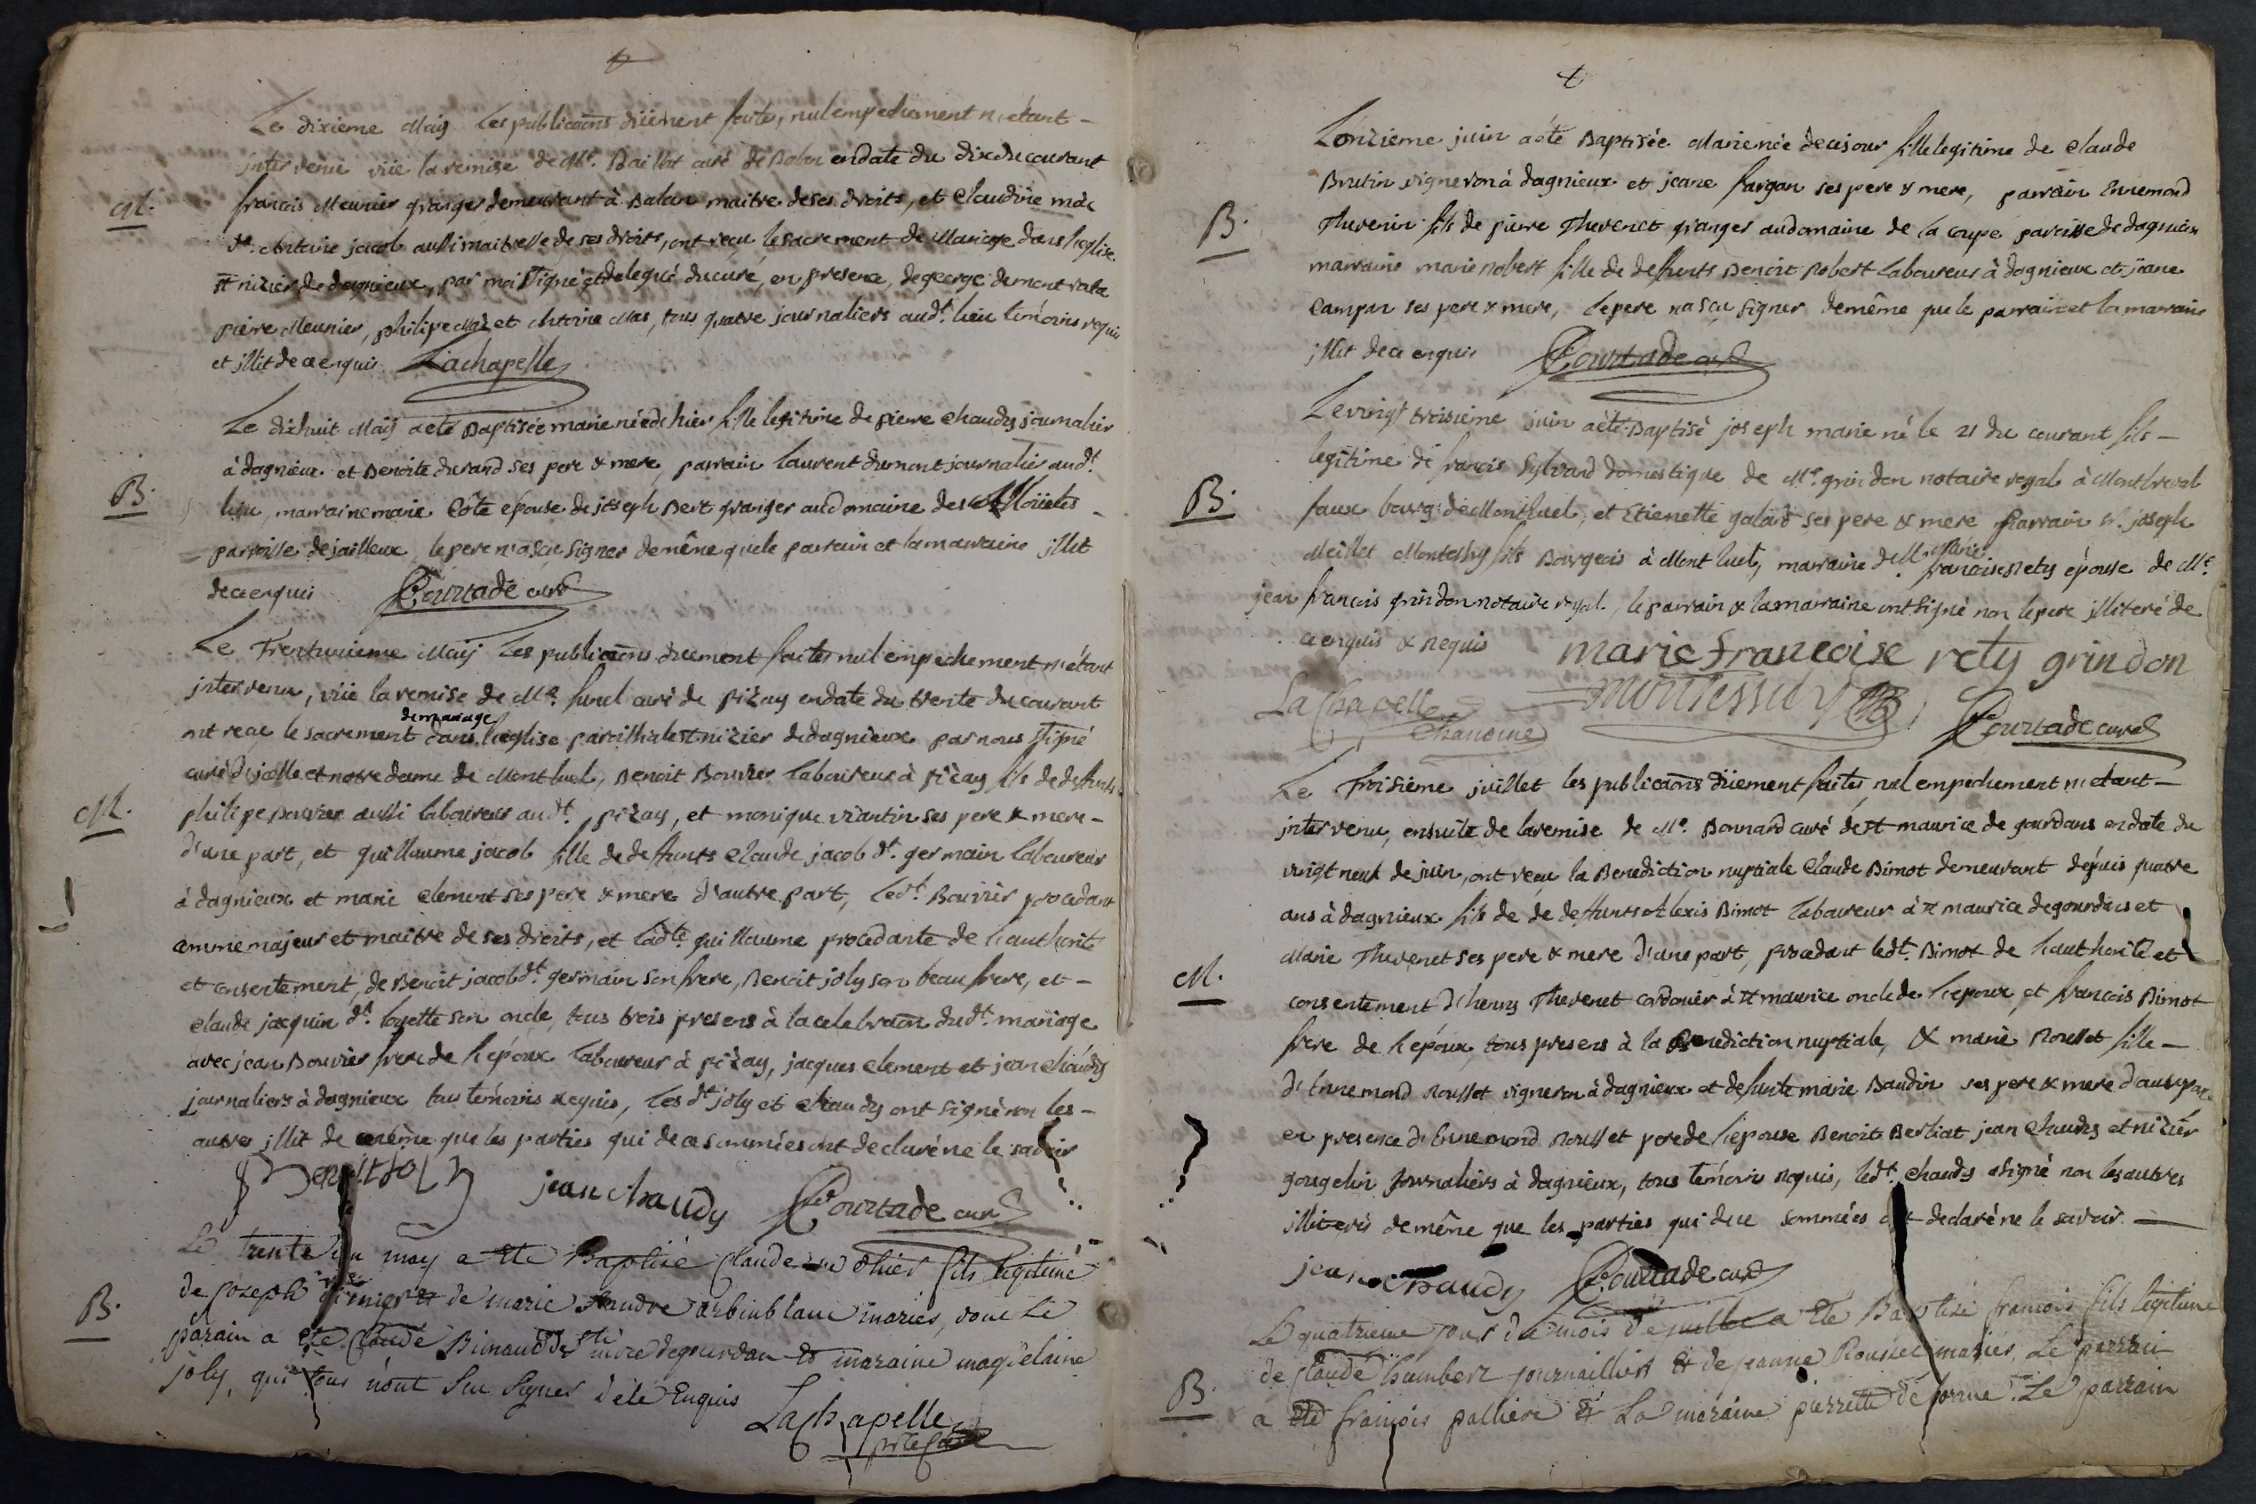 Le dixieme Maÿ Les publicaons düement faites, nul empechement n'etant –
intervenu vüe la remise de Mr. Baillat curé de Balan en date du dix du courant
M.
francois Meunier granger demeurant à Balan maitre de ses droits, et Claudine mas
dt. Antoine jacob aussi maitresse de ses droits, ont reçu le sacrement de Mariage dans l'eglise
st nizier de dagnieux, par moi signé et delegué du curé, en presence, de george dumont
pierre Meunier, philipe Mas et Antoine Mas, tous quatre journaliers audt. lieu témoins requis
et illit de ce enquis Lachapelle
Le dixhuit Maÿ a eté Baptisée marie née d'hier fille legitime de pierre Chaudy journalier
à dagnieux et Benoite durand ses pere & mere, parrain laurent dumont journalier audt.
B.
lieu, marraine marie Côte epouse de joseph Bert granger au domaine des
parroisse de jailleux, le pere n'a sçu signer de même que le parrain et la marraine illit
de ce enquis Courtade curé
Le Trentunieme Maÿ Les publicaons düement faites nul empechement n'étant
intervenu, vüe la remise de Mr. furel curé de pizay en date du trente du courant
de mariage
ont reçu le sacrement dans l'eglise paroissiale st nizier de dagnieux par nous signé
curé d'icelle et notre dame de Montluel, Benoit Bouvier laboureur à pizay fils de deffunts
M.
philipe Bouvier aussi laboureur audt. pizay, et monique viantin ses pere & mere –
d'une part, et guillaume jacob fille de deffunts Claude jacob dt. germain laboureur
à dagnieux et marie clement ses pere & mere d'autre part, ledt. Bouvier procedant
comme majeur et maitre de ses droits, et ladte. guillaume procedante de l'authorité
et consentement, de Benoit jacob dt. germain son frere, Benoit joly son beau frere, et –
claude jacquin dt. loyette son oncle, tous trois presens à la celebraon dudt. mariage
avec jean Bouvier frere de l'epoux laboureur à pizay, jacques clement et jean chaudy
journaliers à dagnieux tous témoins requis, les dt joly et chaudy ont signé non les –
autres illit de même que les parties qui de ce sommées ont declaré ne le savoir
Benoit joly jean chaudy Courtade curé
Le trente un may a eté Baptisé Claude né d'hier fils legitime
de Joseph et de marie arbinblanc mariés, dont le
B.
parain a eté Claude Binaud de st morice de gourdan et maraine magdelaine
joly, qui tous n'ont sçu signer de ce Enquis
Lachapelle
L'onzieme juin a été Baptisée Marie née de ce jour fille legitime de Claude
Brutin vigneron à dagnieux et jeane fargan ses pere & mere, parrain Ennemond
B.
Thevenin fils de pierre Thevenet granger au domaine de la coupe paroisse de dagnieux
marraine marie Robert fille de deffunts Benoit Robert laboureur à dagnieux et jeane
Campan ses pere & mere, le pere n'a sçu signer de même que le parrain et la marraine
illit de ce enquis Courtade curé
Le vingt troisieme juin a été Baptisé joseph marie né le 21 du courant fils –
legitime de francois Sylvard domestique de Mr. grindon notaire royal à Montbreval
B.
faux bourg de Montluel, et Etienette galard ses pere & mere parrain Sr. joseph
Meillet Montessuy fils Bourgeois à Montluel, marraine delle Marie francoise rety épouse de Mr.
jean francois grindon notaire royal. le parrain & la marraine ont signé non le pere illiteré de
ce enquis & requis marie francoise rety grindon
La Chapelle Chanoine montessuy Courtade curé
Le Troisieme juillet les publicaons düement faites, nul empechement n'etant –
intervenu, ensuite de la remise de Mr. Bonnard curé de st maurice de gourdans en date du
vingt neuf de juin, ont recu la Benediction nuptiale Claude Bimot demeurant depuis quatre
ans à dagnieux fils de de deffunts Alexis Bimot laboureur à st maurice de gourdans et
Marie Thevenet ses pere & mere d'une part, procedant ledt. Bimot de l'authorité et
M.
consentement d'henry Thevenet cordonier à st maurice oncle de l'epoux, et francois Bimot
frere de l'époux, tous presens à la Benediction nuptiale, & marie Rousset fille –
d'Ennemond Rousset vigneron à dagnieux et defunte marie Baudin ses pere & mere d'autre part
en presence d'Ennemond Rousset pere de l'epouse Benoit Berliat jean chaudy et nizier
gougelin journaliers à dagnieux, tous témoins requis, ledt. chaudy a signé non les autres
illiterés de même que les parties qui de ce sommées ont declaré ne le savoir. –
jean chaudy Courtade curé
Le quatrieme jour du mois de juillet a eté Baptisé francois fils legitime
de Claude humbert journaillier et de jeanne Rousset mariés, Le parrain
B.
a eté francois palliere et La maraine pierrette de Le parrain